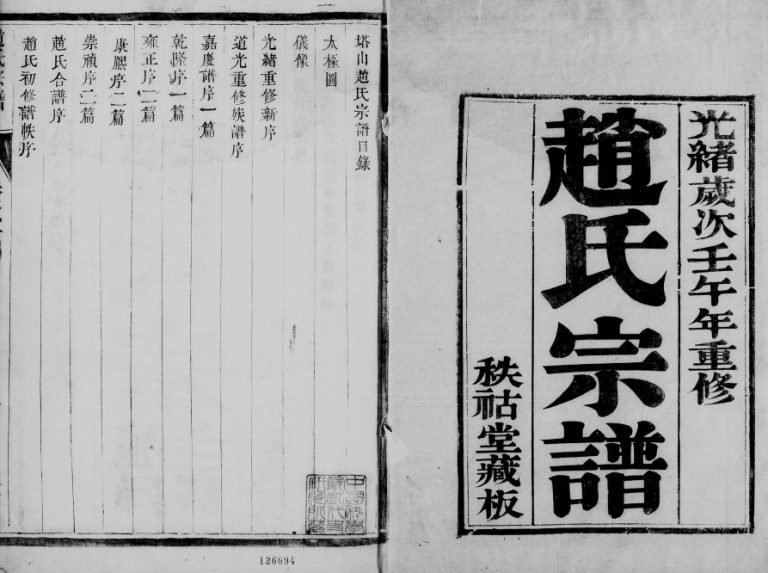 光緒歲次壬午年重修
趙氏宗譜
秩祜堂藏板
塔山趙氏宗譜目錄
太極圖
儀像
光緒重修新序
道光重修族譜序
嘉慶譜序一篇
乾隆序一篇
雍正序二篇
康熙序二篇
崇禎序二篇
趙氏合譜序
趙氏初修譜帙序
126694